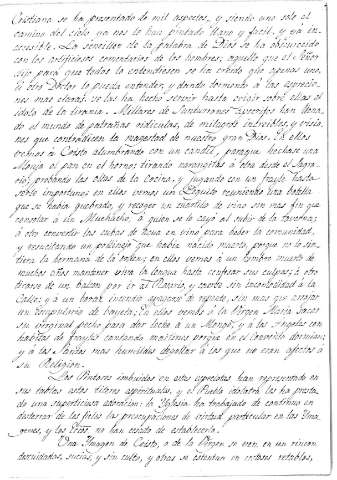 Cristiano se ha presentado de mil aspectos, y siendo uno solo el
camino del cielo ya nos le han pintado llano y facil, y ya en-
accesible. La sencillez de la palabra de Dios se ha obscurecido
con los artificiosos comentarios de los hombres; aquello que el Señor
dijo para que todos lo entendiesen se ha creido que apenas uno,
ú otro Doctor lo pueda entender, y dando tormento á las expresio-
nes mas claras, se las ha hecho servir hasta erigir sobre ellas el
idolo de la tirania. Millares de Santurrones apocrifos han llena-
do el mundo de patrañas ridiculas, de milagros increibles, y visio-
nes que contradicen la magestad de nuestro gran Dios. En ellos
vemos a Cristo alumbrando con un candil, para que hechase una
Monja el pan en el horno; tirando naranjitas á otra desde el Sagra-
rio; probando las ollas de la Cocina, y jugando con un frayle hasta
serle importuno: en ellos vemos un Leguito reuniendo una botella
que se habia quebrado, y recoger un cuartillo de vino con mas fin que
consolar á un Muchacho á quien se le cayó al subir de la taberna;
á otro convertir las cubas de agua en vino para beber la comunidad,
y resucitando un pollinejo que habia nacido muerto, porque no lo sin-
tiera la hermana de la orden; en ellos vemos á un hombre muerto de
muchos años mantener viva la lengua hasta confesar sus culpas; á otro
tirarse de un balcon por ir al Rosario, y caerse sin incomodidad á la
Calle; y á un horroroso incendio apagarse de repente, sin mas que arrojar
un escapulario de bayeta; En ellos vemos á la Virgen Maria sacar
su virginal pecho para dar leche á un Monge, y á los Angeles con
habitos de frayles cantando maitines porque en el convento dormian;
y á los Santos mas humildes degollar á los que no eran afectos á
su Religion.
Los Pintores imbuidos en estas apocrifas han representado en
sus tablas estos titeres espirituales, y el Pueblo idolatra les ha presta-
do una supersticiosa adoracion: la Yglesia ha trabajado de continuo en
desterrar de los fieles las preocupaciones de virtud particular en las Yma-
genes, y los Ecos. no han cesado de establecerla.
Una Ymagen de Cristo, ó de la Virgen se ven en un rincon
desnudadas, sucias, y sin culto, y otras se ostentan en costosos retablos,